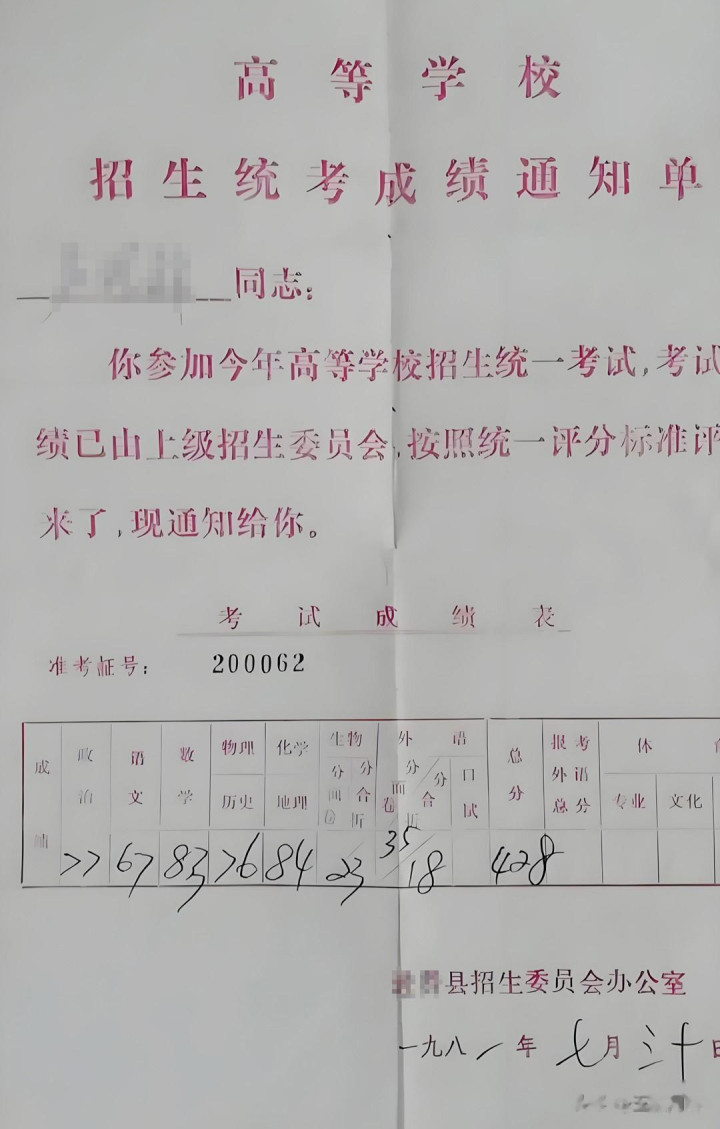 高等学校
招生统考成绩通知单
同志：
你参加今年高等学校招生统一考试,考试
绩已由上级招生委员会,按照统一评分标准评
来了,现通知给你。
考试成绩表
准考证号： 200062
成绩 政治 语文 数学 物理 历史 化学 地理 生物 卷面分 折合分 外语 卷面分 折合分 口试 总分 报考外语总分 体 专业 文化
77 67 83 76 84 23 35/18 428
县招生委员会办公室
一九八一年七月三十日